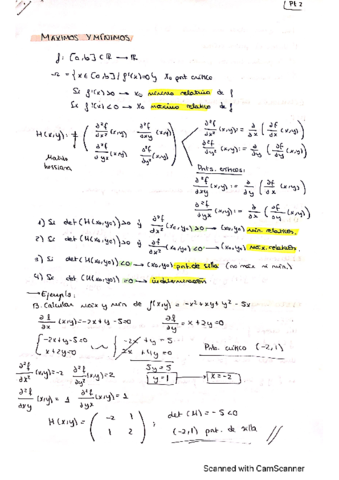 P1 2
MAXIMOS Y MÍNIMOS
f: [a,b] ⊂ ℝ → ℝ
= {x ∈ [a,b] / f'(x)=0} x₀ pnt crítico
Si f''(x)>0 → x₀ mínimo relativo de f
Si f''(x)<0 → x₀ máximo relativo de f
H(x,y) = ( ∂²f/∂x² (x,y) ∂²f/∂xy (x,y)
∂²f/∂yx (x,y) ∂²f/∂y² (x,y) )
Matriz hessiana
∂²f/∂x² (x,y) = ∂/∂x (∂f/∂x (x,y))
∂²f/∂y² (x,y) = ∂/∂y (∂f/∂y (x,y))
Pnts. críticos:
∂²f/∂xy (x,y) = ∂/∂x (∂f/∂y (x,y))
∂²f/∂yx (x,y) = ∂/∂y (∂f/∂x (x,y))
1) Si det (H(x₀,y₀)) >0 y ∂²f/∂x² (x₀,y₀) >0 → (x₀,y₀) mín relativo.
2) Si det (H(x₀,y₀)) >0 y ∂²f/∂x² (x₀,y₀) <0 → (x₀,y₀) máx. relativo.
3) Si det (H(x₀,y₀)) <0 → (x₀,y₀) pnt. de silla (no máx ni mín)
4) Si det (H(x₀,y₀)) =0 → indeterminación
→ Ejemplo:
13. Calcular máx y mín de f(x,y) = -x² + xy + y² - 5x
∂f/∂x (x,y) = -2x + y - 5 = 0 ∂f/∂y = x + 2y = 0
{ -2x + y - 5 = 0
x + 2y = 0
{ -2x + y = 5
2x + 4y = 0
5y = 5
y = 1 → x = -2
Pnto crítico (-2,1)
∂²f/∂x² (x,y) = -2 ∂²f/∂y² (x,y) = 2
∂²f/∂xy (x,y) = 1 ∂²f/∂yx (x,y) = 1
H(x,y) = ( -2 1
1 2 ) ;
det (H) = -5 < 0
(-2,1) pnt. de silla
Scanned with CamScanner